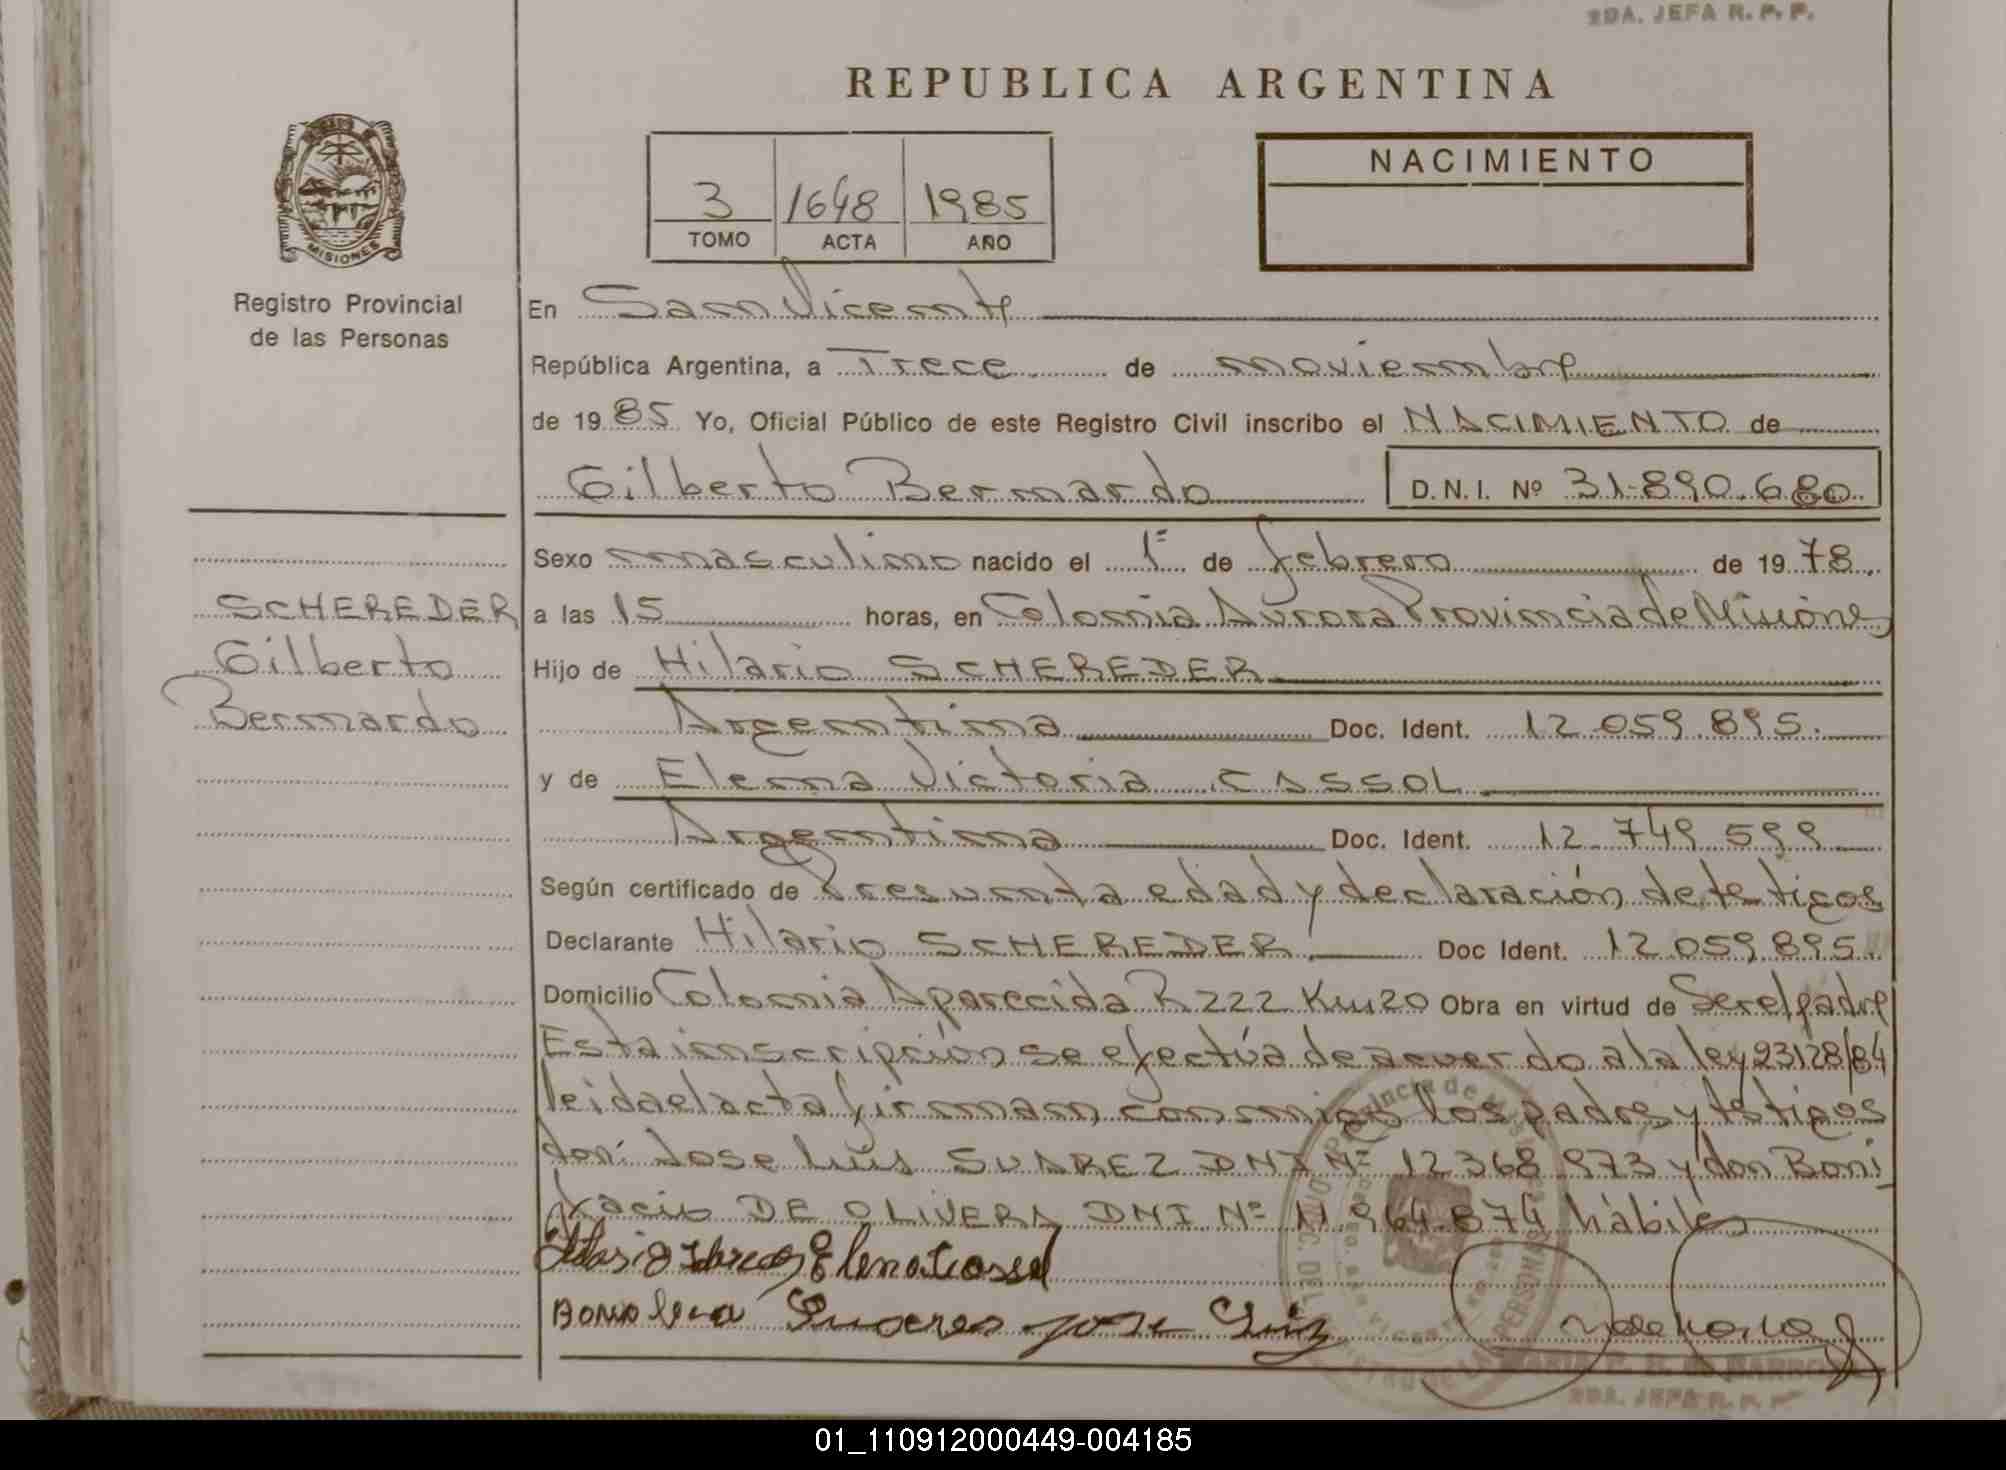 2DA. JEFA R. P. P.
REPUBLICA ARGENTINA
MISIONES
Registro Provincial
de las Personas
3 1648 1985
TOMO ACTA AÑO
NACIMIENTO
En San Vicente
República Argentina, a Trece de noviembre
de 1985 Yo, Oficial Público de este Registro Civil inscribo el NACIMIENTO de
Gilberto Bernardo D.N.I. Nº 31.890.680
Sexo masculino nacido el 1º de febrero de 1978.
SCHEREDER
Gilberto
Bernardo
a las 15 horas, en Colonia Aurora Provincia de Misiones
Hijo de Hilario SCHEREDER
Argentina Doc. Ident. 12.059.895.
y de Elena Victoria CASSOL
Argentina Doc. Ident. 12.749.599
Según certificado de Presunta edad y declaración de testigos
Declarante Hilario SCHEREDER. Doc Ident. 12.059.895.
Domicilio Colonia Aparecida R 222 Km 20 Obra en virtud de Ser el padre
Esta inscripción se efectúa de acuerdo a la ley 23128/84
leida el acta firman conmigo los padres y testigos
don: Jose Luis SUAREZ DNI Nº 12.368.973 y don Boni
facio DE OLIVERA DNI Nº 11.964.874 hábiles
Elena Cassol
Jose Luiz
2DA. JEFA R. P. P.
01_110912000449-004185